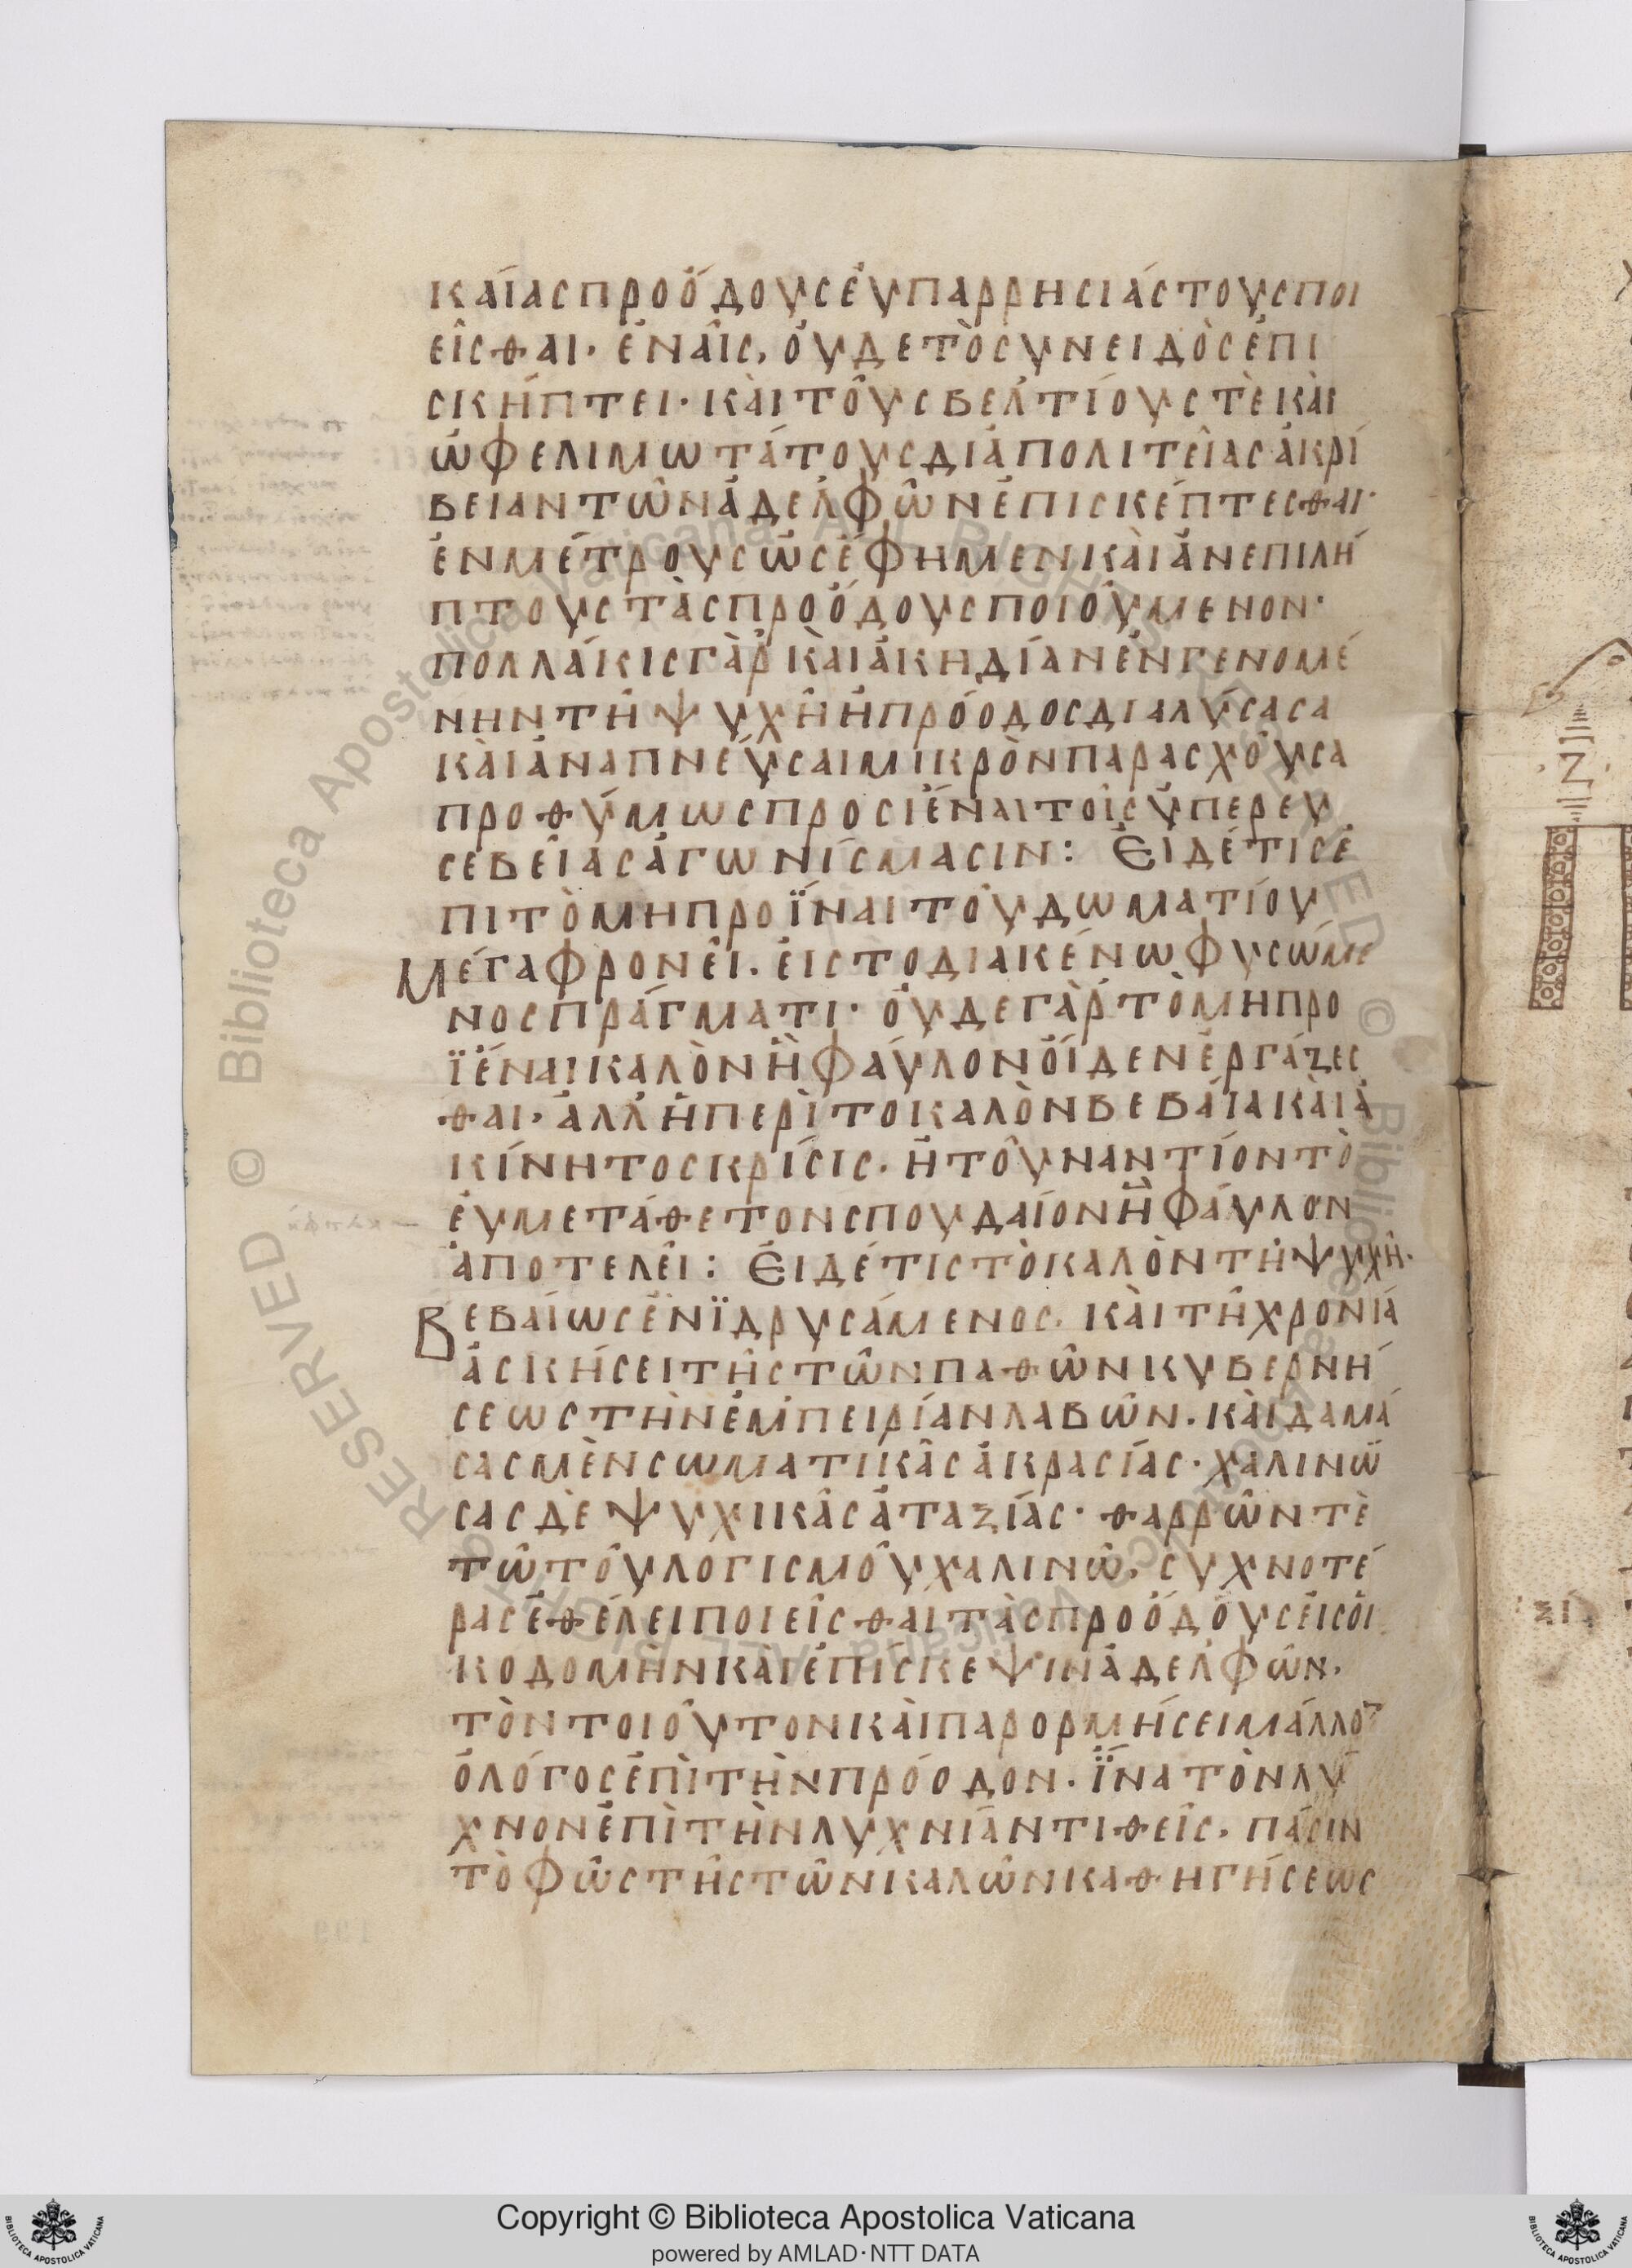 καίας προόδους ἐυπαρρησιάστους ποι
εῖσθαι· ἐν αἷς, ὀυδε τὸ συνειδὸς ἐπι
σκήπτει· κὰι τοῦς βελτίους τὲ κὰι
ὠφελιμωτάτους διὰ πολιτείας ἀκρί
βειαν τῶν ἀδελφῶν ἐπισκέπτεσθαι·
ἐν μέτρους ὡς ἔφημεν κὰι ἀνεπιλή
πτους τὰς προόδους ποιοῦμενον·
πολλάκις γὰρ κὰι ἀκηδίαν ἐνγενομέ
νην τῆ ψυχῆ ἡ πρόοδος διαλύσασα
κὰι ἀναπνεύσαι μικρὸν παρασχοῦσα
προθύμως προσιέναι τοῖς ὑπερ ευ
σεβείας ἀγωνίσμασιν: Ἐι δέ τις ἐ
πι τὸ μη προϊέναι τοῦ δωματίου
μέγα φρονεῖ. ἐις το διακένω φυσώμε
νος πράγματι· ὀυδε γὰρ τὸ μη προ
ϊέναι καλὸν ἢ φάυλον ὁίδεν ἐργάζεσ
θαι· ἀλλ' ἡ περὶ το καλὸν βεβάια κὰι ἀ
κίνητος κρίσις. ἢ τοῦναντίον τὸ
ἐυμετάθετον σπουδαίον ἢ φάυλον
ἀποτελεῖ: Ἐι δέ τις τὸ καλὸν τῆ ψυχῆ·
βεβαίως ἐνϊδρυσάμενος. κὰι τῆ χρονιά
ἀσκήσει τῆς τῶν παθῶν κυβερνή
σεως τὴν ἐμπειρίαν λαβῶν. κὰι δαμά
σας μὲν σωματικᾶς ἀκρασίας· χαλινώ
σας δὲ ψυχικᾶς ἀταξίας· θαρρῶν τὲ
τῶ τοῦ λογισμοῦ χαλινῶ, συχνοτέ
ρας ἐθέλει ποιεῖσθαι τὰς προόδους ἐις ὀι
κοδομὴν κὰι ἐπίσκεψιν ἀδελφῶν.
τὸν τοιοῦτον κὰι παρορμήσει μάλλον
ὁ λόγος ἐπὶ τὴν πρόοδον. ἵνα τὸν λύ
χνον ἐπὶ τὴν λυχνίαν τιθεῖς. πάσιν
τὸ φῶς τῆς τῶν καλῶν καθηγήσεως
Copyright © Biblioteca Apostolica Vaticana
powered by AMLAD·NTT DATA